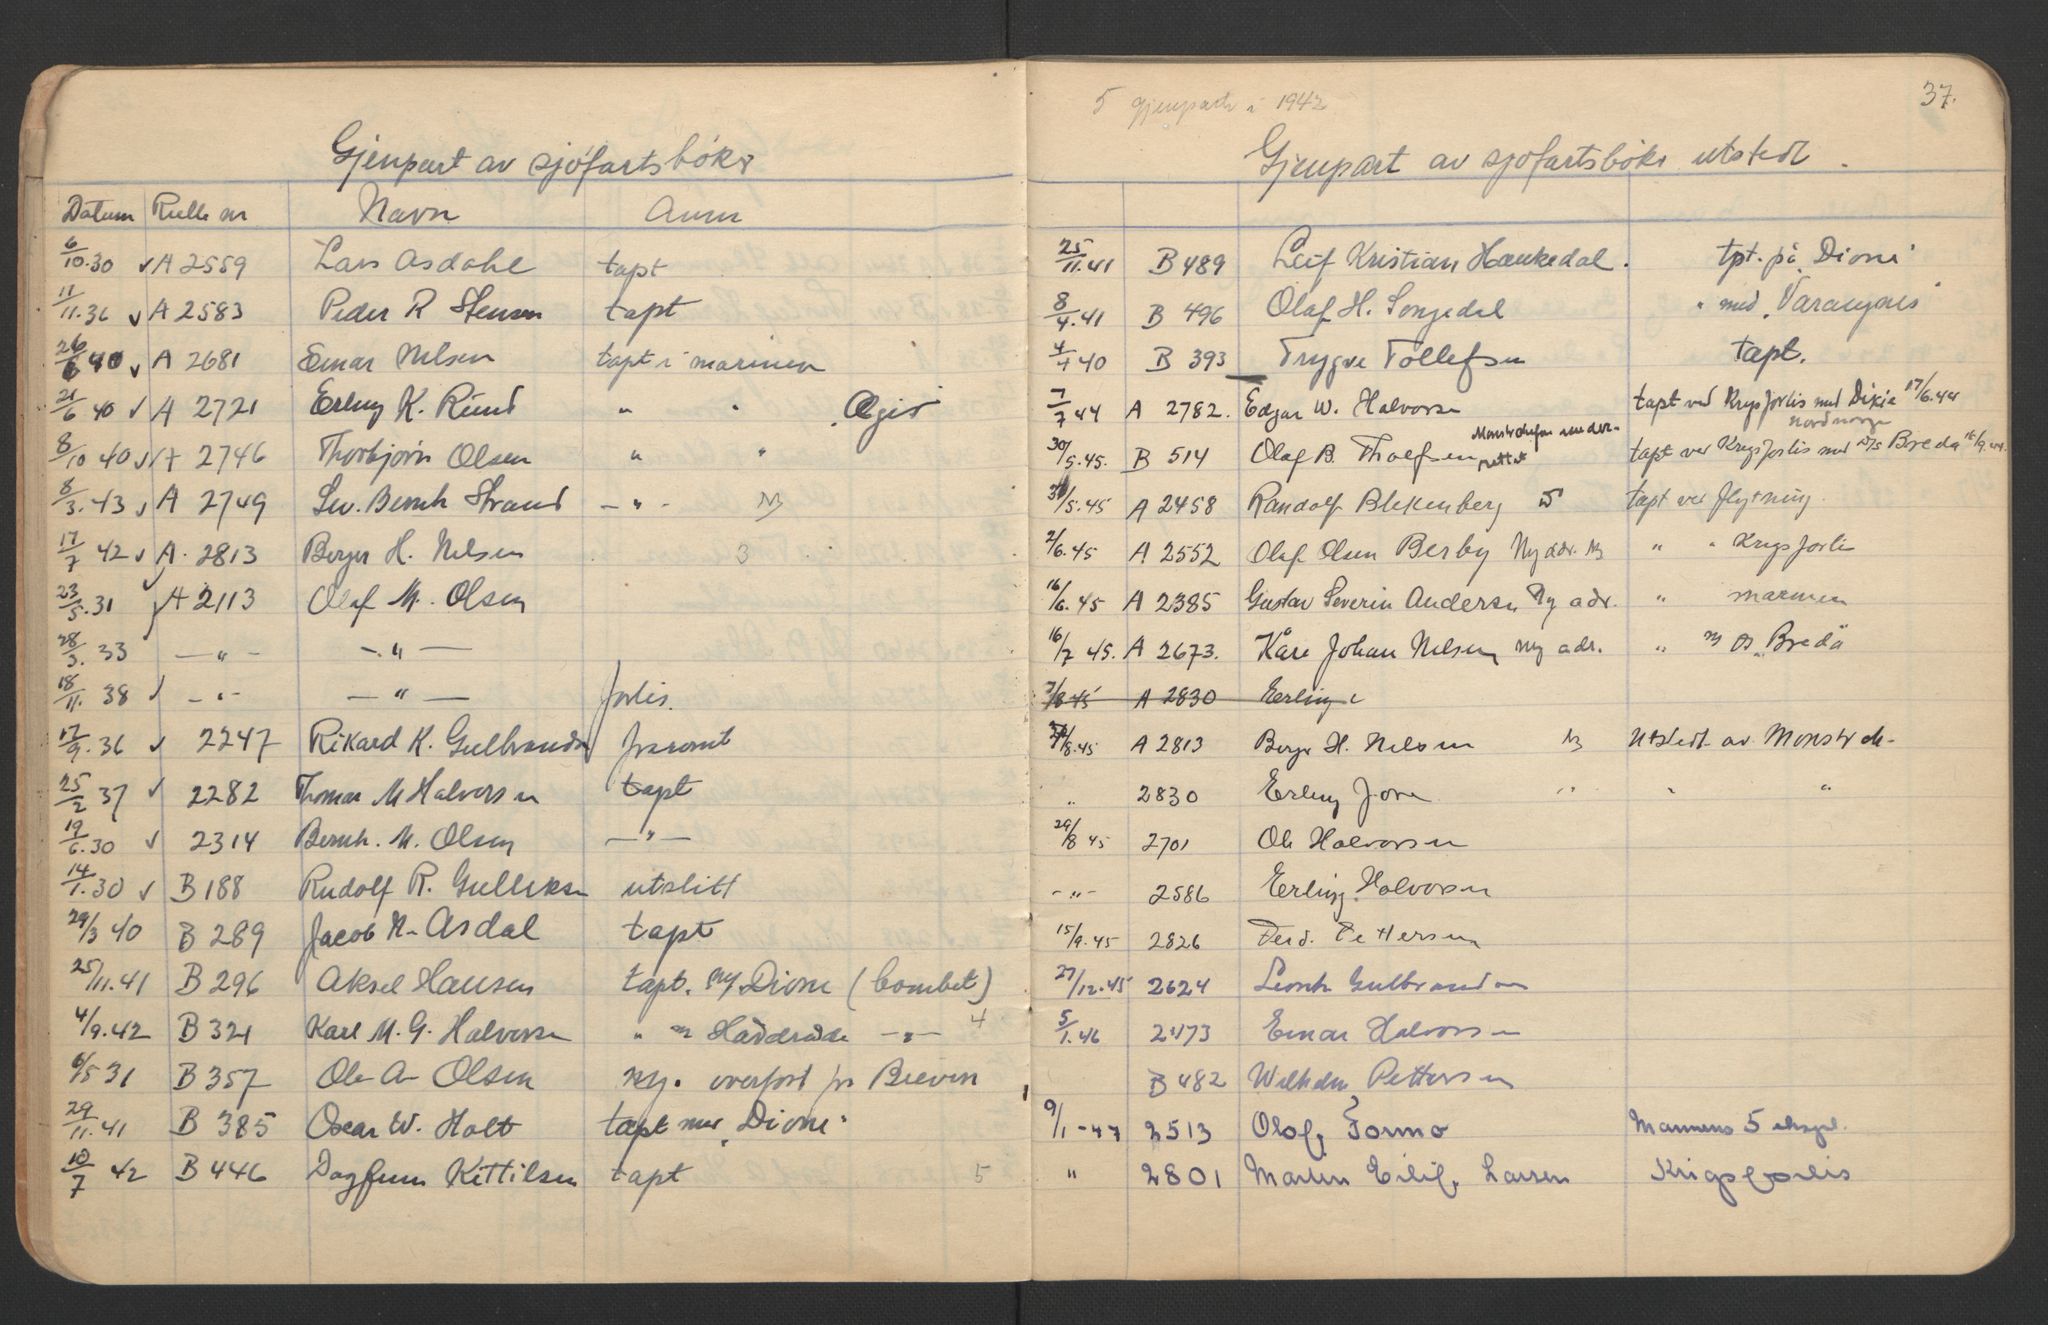 Gjenpart av sjöfartsböker
Datum Rulle nr Navn Anm
6/10.30 ✓ A 2559 Lars Asdahl tapt
11/11.36 ✓ A 2583 Peder R Stensen tapt
26/6 40 ✓ A 2681 Einar Nilsen tapt i marinen
21/6 40 ✓ A 2721 Erling K. Rund " " Ægir
8/10 40 ✓ A 2746 Thorbjörn Olsen " "
8/3.43 ✓ A 2749 Sev. Bernh Strand - " -
17/7 42 ✓ A. 2813 Berger H. Nilsen 3
23/5.31 A 2113 Olaf M. Olsen
28/3.33 - " - - " -
18/11.38 ✓ - " - - " - forlis.
17/9.36 ✓ 2247 Rikard K. Gulbrandsen
25/2 37 ✓ 2282 Thomas M Halvorsen tapt
19/6.30 ✓ 2314 Bernh. M. Olsen - " -
14/1.30 ✓ B 188 Rudolf R. Gulliksen utslitt
29/3 40 B 289 Jacob N. Asdal tapt
25/11.41 B 296 Aksel Hansen tapt. m/ Dione (bombet)
4/9.42 B 321 Karl M. G. Halvorsen " " Hadderade - " - 4
6/5 31 B 357 Ole A Olsen ny. overført fr Brevin
29/11.41 B 385 Oscar W. Holt tapt med "Dione"
10/7 42 B 446 Dagfinn Kittilsen tapt 5
5 gjenparts i 1942
37.
Gjenpart av sjöfartsböker utstedt.
25/11.41 B 489 Leif Kristian Haukedal. tpt. på "Dione"
8/4.41 B 496 Olaf H. Songedal " med "Varangnes"
4/4 40 B 393 Trygve Tollefsen tapt.
7/7 44 A 2782. Edgar W. Halvorsen tapt ved Krigsforlis med Dixie 17/6.44
Nordnorge
30/5.45. B 514 Olaf B. Tholfsen tapt ved Krigsforlis med D/S Breda
31/5.45 A 2458 Randolf Blekenberg tapt ved flytning.
2/6.45 A 2552 Olaf Olsen Berby Ny adr. " " Krigsforlis
16/6.45 A 2385 Gustav Severin Andersen Ny adr. " marinen
16/7 45. A 2673. Kåre Johan Nilsen, ny adr. " " DS "Breda"
7/8 45 A 2830 Erling
27/8.45 A 2813 Berger H. Nilsen Utstedt av Mønstr ch-
" 2830 Erling Jore " " "
29/8 45 2701 Ole Halvorsen
- " - 2586 Erling Halvorsen
15/9.45 2826 Ferd. Pettersen
27/12.45 2624 Leonh Gulbrandsen
5/1.46 2473 Einar Halvorsen
B 482 Wilhelm Pettersen
9/1-47 2513 Olaf, Tormo Mannens 5 ekspl.
" 2801 Martin Eilif. Larsen Krigsforlis